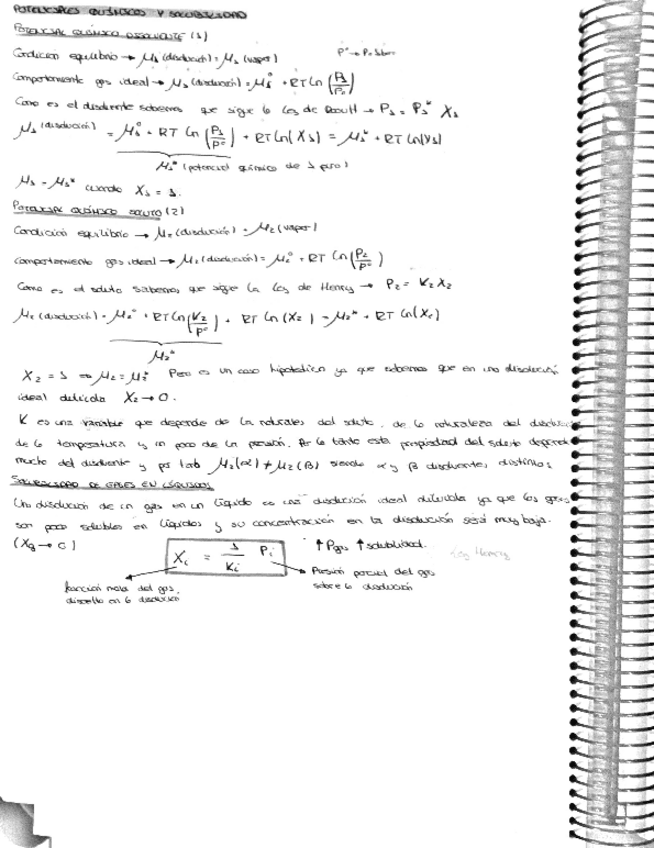 POTENCIALES QUÍMICOS Y SOLUBILIDAD
POTENCIAL QUÍMICO DISOLVENTE (1)
Condicion equilibrio → μ₁ (disolución) = μ₁ (vapor) P° → P=1bar
Comportamiento gas ideal → μ₁ (disolución) = μ₁° + RT Ln (P₁/P°)
Como es el disolvente sabemos que sigue la Ley de Raoult → P₁ = P₁* X₁
μ₁ (disolución) = μ₁° + RT Ln (P₁/P°) + RT Ln (X₁) = μ₁* + RT Ln (X₁)
μ₁* (potencial químico de 1 puro)
μ₁ = μ₁* cuando X₁ = 1.
POTENCIAL QUÍMICO SOLUTO (2)
Condición equilibrio → μ₂ (disolución) = μ₂ (vapor)
comportamiento gas ideal → μ₂ (disolución) = μ₂° + RT Ln (P₂/P°)
Como es el soluto sabemos que sigue la Ley de Henry → P₂ = K₂ X₂
μ₂ (disolución) = μ₂° + RT Ln (K₂/P°) + RT Ln (X₂) = μ₂* + RT Ln (X₂)
μ₂*
X₂ = 1 ⇒ μ₂ = μ₂* Pero es un caso hipotético ya que sabemos que en una disolución
ideal diluida X₂ → 0.
K es una variable que depende de la naturales del soluto, de la naturaleza del disolven
de la temperatura y un poco de la presión. Por lo tanto esta propiedad del soluto depende
mucho del disolvente y por tanto μ₂(α) ≠ μ₂(β) siendo α y β disolventes distintos.
SOLUBILIDAD DE GASES EN LÍQUIDOS
Una disolución de un gas en un líquido es una disolución ideal diluida ya que los gases
son poco solubles en líquidos y su concentración en la disolución será muy baja.
(Xg → 0) Xᵢ = 1/Kᵢ Pᵢ ↑Pgas ↑solubilidad. Ley Henry
fracción molar del gas, Presión parcial del gas
disuelto en la disolución sobre la disolución